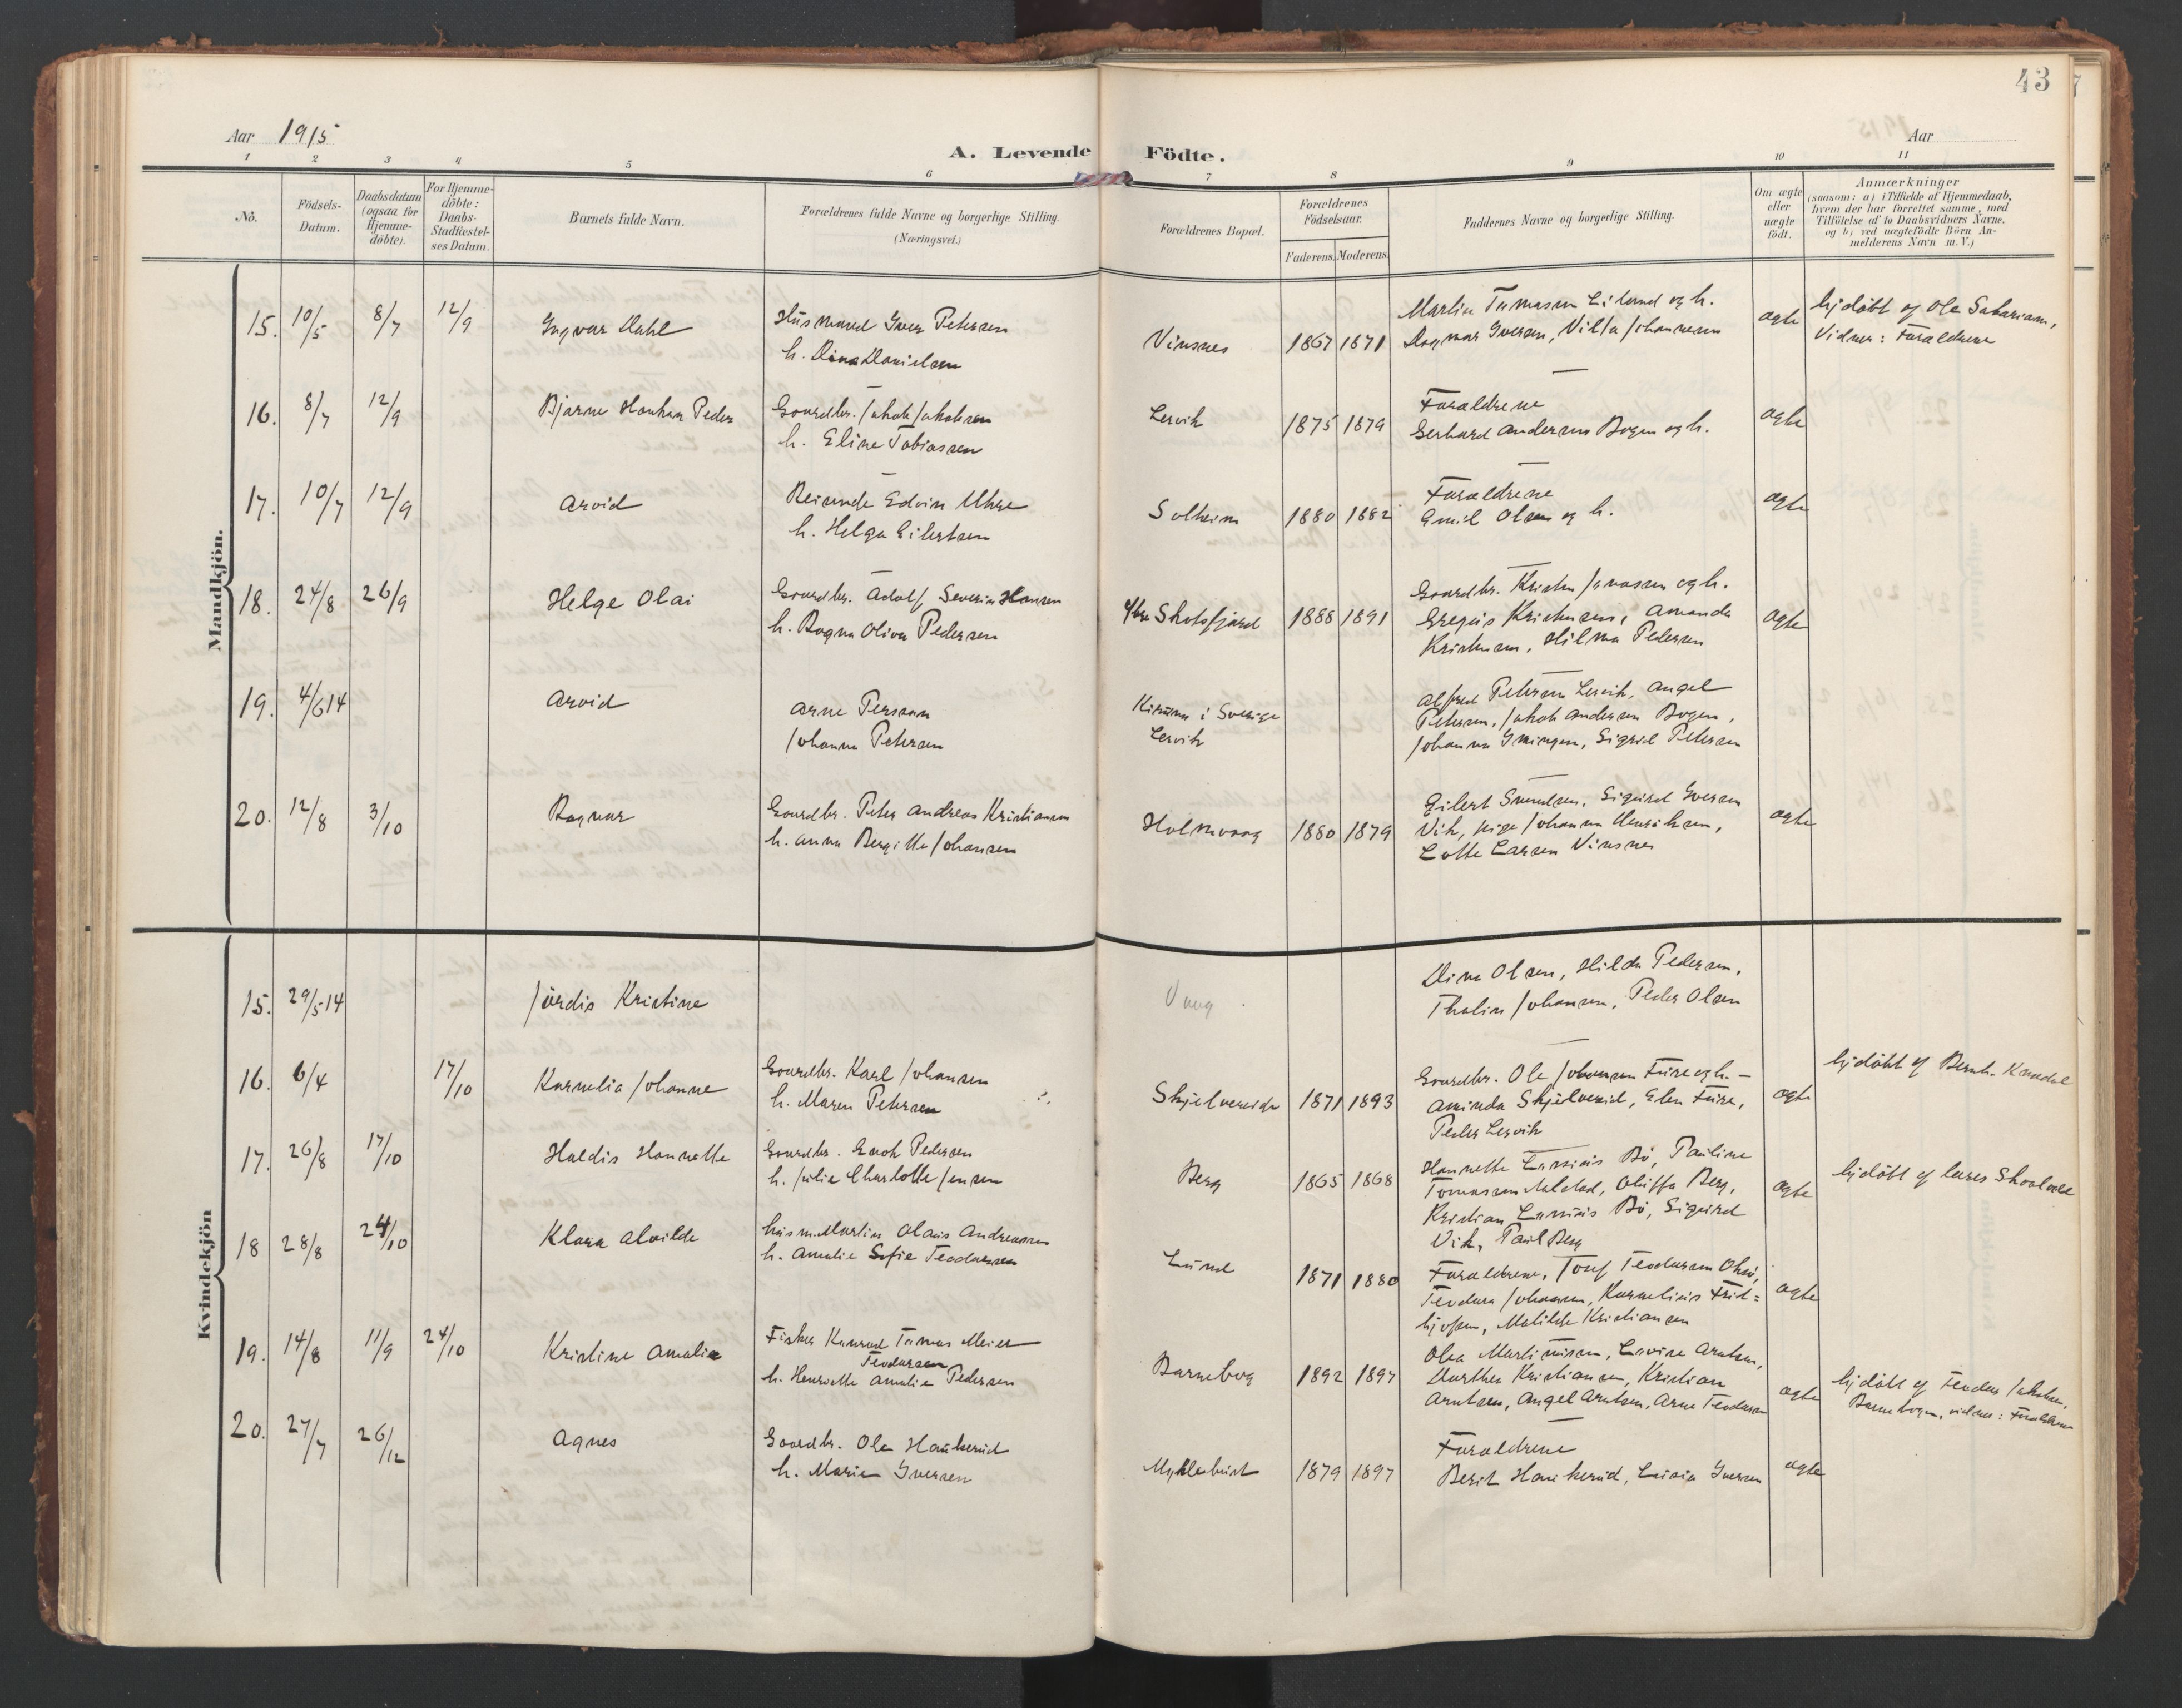 43
Aar 1915
A. Levende Födte.
Aar
1 2 3 4 5 6 7 8 9 10 11
No.
Födsels-Datum.
Daabsdatum (ogsaa for Hjemme-döbte).
For Hjemme-döbte: Daabs-Stadfæstel-ses Datum.
Barnets fulde Navn.
Forældrenes fulde Navne og borgerlige Stilling. (Næringsvei.)
Forældrenes Bopæl.
Forældrenes Födselsaar.
Faderens. Moderens.
Faddernes Navne og borgerlige Stilling.
Om ægte eller uægte födt.
Anmærkninger
(saasom: a) i Tilfælde af Hjemmedaab,
hvem der har forrettet samme, med
Tilföielse af to Daabsvidners Navne,
og b) ved uægtefödte Börn An-
melderens Navn m. V.)
Mandkjön.
15. 10/5 8/7 12/9 Ingvar Dahl
Husmand Iver Petersen
h. Dina Danielsen
Vinsnes 1867 1871
Martin Tomassen Eilund og h.
Dagmar Iversen, Johannessen
ægte
hjdöbt af Ole Sakariassen,
Vidner: Forældrene
16. 8/7 12/9 Bjarne Haakon Peder
Gaardbr. Jakob Jakobsen
h. Eline Tobiassen
Lervik 1875 1879
Forældrene
Gerhard Andersen Bogen og h.
ægte
17. 10/7 12/9 Arvid
Reisende Edvin Uhre
h. Helga Eilertsen
Solheim 1880 1882
Forældrene
Emil Olsen og h.
ægte
18. 24/8 26/9 Helge Olai
Gaardbr. Adolf Severin Hansen
h. Ragna Oliva Pedersen
Skotsfjord 1888 1891
Gaardbr. Kristen Jonassen og h.
Gregus Kristensen, Amanda
Kristensen, Hilma Pedersen
ægte
19. 4/6 14 Arvid
Arne Persson
Johanna Petersen
Kiruna i Sverige
Lervik
Alfred Petersen Lervik, Angel
Petersen, Jakob Andersen Bogen,
Johanna Iningen, Sigrid Petersen
20. 12/8 3/10 Ragnar
Gaardbr. Peter Andreas Kristiansen
h. Anna Bergitte Johansen
Holmvaag 1880 1879
Eilert Svendsen, Sigurd Iversen
Vik, pige Johanna Henriksen,
Lotte Larsen Vinsnes
ægte
Kvindekjön
15. 29/5 14 Jördis Kristine
Vaag
Dina Olsen, Hilda Pedersen,
Thalie Johansen, Peder Olsen
16. 6/4 17/10 Kornelia Johanne
Gaardbr. Karl Johansen
h. Maren Petersen
Skjelvereide 1871 1893
Gaardbr. Ole Johansen Fure og h. –
Aminda Skjelvereid, Elen Fure,
Peder Lervik
ægte
hjdöbt af Bernh. Knedal
17. 26/8 17/10 Haldis Hannette
Gaardbr. Enok Pedersen
h. Julie Charlotte Jensen
Berg 1865 1868
Hannette Lassiais Bö, Pauline
Tomassen Alstad, Oluffa Berg,
Kristian Lassiais Bö, Sigurd
Vik, Paul Berg
ægte
hjdöbt af lærer
18 28/8 24/10 Klara Alvilde
husm. Martin Olaus Andreassen
h. Amalie Sofie Teodorsen
Lund 1871 1880
Forældrene, Josef Teodorsen
Teodora Johansen, Kornelius Frid=
tjofsen, Matilde Kristiansen
ægte
19. 14/8 11/9 24/10 Kristine Amalie
Fisker Konrad Tomas Meier
Teodorsen
h. Henriette Amalie Pedersen
Barnebog 1892 1897
Olea Martinussen, Lovise Arntsen,
Dorthea Kristiansen, Kristian
Arntsen, Angel Arntsen, Arne Teodorsen
ægte
hjdöbt af Teodor Jakobsen,
Barnebogen, vidner: Forældrene
20. 27/7 26/12 Agnes
Gaardbr. Ole Haukerud
h. Marie Iversen
Myklebust 1879 1897
Forældrene
Berit Haukerud, Luisa Iversen
ægte